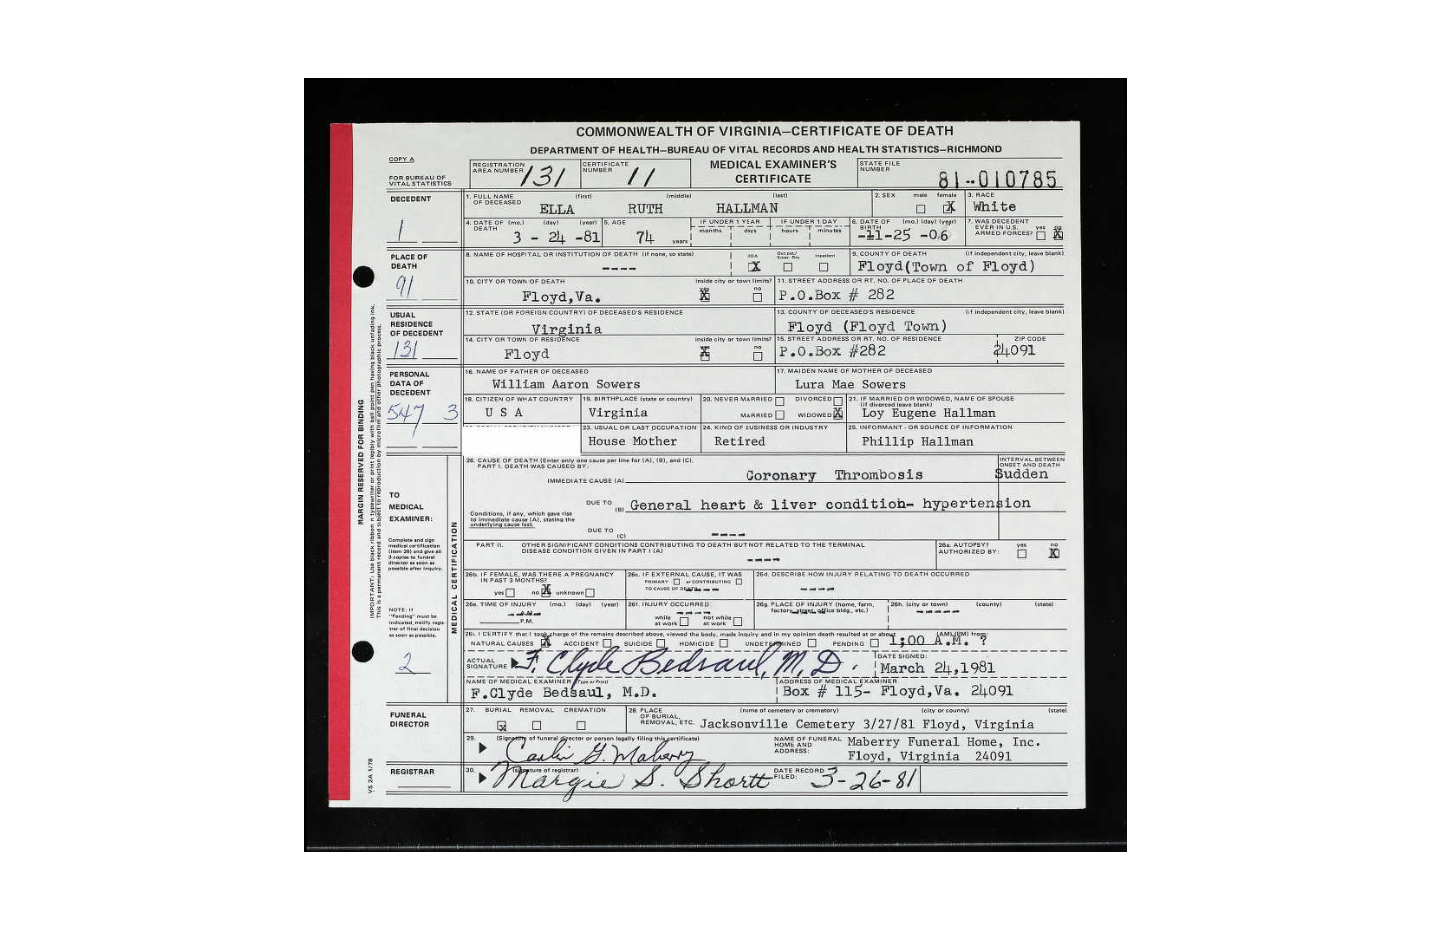 COMMONWEALTH OF VIRGINIA—CERTIFICATE OF DEATH
DEPARTMENT OF HEALTH—BUREAU OF VITAL RECORDS AND HEALTH STATISTICS—RICHMOND
COPY A
FOR BUREAU OF VITAL STATISTICS
REGISTRATION AREA NUMBER 131
CERTIFICATE NUMBER 11
MEDICAL EXAMINER'S CERTIFICATE
STATE FILE NUMBER 81-010785
DECEDENT
1
1. FULL NAME OF DECEASED (first) (middle) (last)
ELLA RUTH HALLMAN
2. SEX male female X
3. RACE White
4. DATE OF DEATH (mo.) (day) (year) 3 - 24 -81
5. AGE 74 years
IF UNDER 1 YEAR months days
IF UNDER 1 DAY hours minutes
6. DATE OF BIRTH (mo.) (day) (year) -11-25 -06
7. WAS DECEDENT EVER IN U.S. ARMED FORCES? yes no X
PLACE OF DEATH
91
8. NAME OF HOSPITAL OR INSTITUTION OF DEATH (if none, so state)
----
DOA X Inpatient
9. COUNTY OF DEATH (if independent city, leave blank)
Floyd(Town of Floyd)
10. CITY OR TOWN OF DEATH inside city or town limits? X no
Floyd,Va.
11. STREET ADDRESS OR RT. NO. OF PLACE OF DEATH
P.O.Box # 282
USUAL RESIDENCE OF DECEDENT
131
12. STATE (OR FOREIGN COUNTRY) OF DECEASED'S RESIDENCE
Virginia
13. COUNTY OF DECEASED'S RESIDENCE (if independent city, leave blank)
Floyd (Floyd Town)
14. CITY OR TOWN OF RESIDENCE inside city or town limits? X no
Floyd
15. STREET ADDRESS OR RT. NO. OF RESIDENCE ZIP CODE
P.O.Box #282 24091
PERSONAL DATA OF DECEDENT
547 3
16. NAME OF FATHER OF DECEASED
William Aaron Sowers
17. MAIDEN NAME OF MOTHER OF DECEASED
Lura Mae Sowers
18. CITIZEN OF WHAT COUNTRY
U S A
19. BIRTHPLACE (state or country)
Virginia
20. NEVER MARRIED DIVORCED
MARRIED WIDOWED X
21. IF MARRIED OR WIDOWED, NAME OF SPOUSE (if divorced leave blank)
Loy Eugene Hallman
23. USUAL OR LAST OCCUPATION
House Mother
24. KIND OF BUSINESS OR INDUSTRY
Retired
25. INFORMANT - OR SOURCE OF INFORMATION
Phillip Hallman
TO MEDICAL EXAMINER:
Complete and sign medical certification (item 26) and give all 3 copies to funeral director as soon as possible after inquiry.
NOTE: If "Pending" must be indicated, notify registrar of final decision as soon as possible.
2
MEDICAL CERTIFICATION
26. CAUSE OF DEATH (Enter only one cause per line for (A), (B), and (C).
PART I. DEATH WAS CAUSED BY:
INTERVAL BETWEEN ONSET AND DEATH
IMMEDIATE CAUSE (A) Coronary Thrombosis Sudden
DUE TO (B) General heart & liver condition- hypertension
Conditions, if any, which gave rise to immediate cause (A), stating the underlying cause last.
DUE TO (C) ----
PART II. OTHER SIGNIFICANT CONDITIONS CONTRIBUTING TO DEATH BUT NOT RELATED TO THE TERMINAL DISEASE CONDITION GIVEN IN PART I (A)
----
26a. AUTOPSY? AUTHORIZED BY: yes no X
26b. IF FEMALE, WAS THERE A PREGNANCY IN PAST 3 MONTHS?
yes no X unknown
26c. IF EXTERNAL CAUSE, IT WAS
PRIMARY or CONTRIBUTING TO CAUSE OF DEATH
26d. DESCRIBE HOW INJURY RELATING TO DEATH OCCURRED
----
26e. TIME OF INJURY (mo.) (day) (year)
P.M.
26f. INJURY OCCURRED
while at work not while at work
26g. PLACE OF INJURY (home, farm, factory, street, office bldg., etc.)
26h. (city or town) (county) (state)
-----
26i. I CERTIFY that I took charge of the remains described above, viewed the body, made inquiry and in my opinion death resulted at or about 1;00 A.M. ? (AM) (PM) from:
NATURAL CAUSES X ACCIDENT SUICIDE HOMICIDE UNDETERMINED PENDING
ACTUAL SIGNATURE F. Clyde Bedsaul, M.D.
DATE SIGNED: March 24,1981
NAME OF MEDICAL EXAMINER (Type or Print)
F.Clyde Bedsaul, M.D.
ADDRESS OF MEDICAL EXAMINER
Box # 115- Floyd,Va. 24091
FUNERAL DIRECTOR
27. BURIAL REMOVAL CREMATION
X
28. PLACE OF BURIAL, REMOVAL, ETC. (name of cemetery or crematory) (city or county) (state)
Jacksonville Cemetery 3/27/81 Floyd, Virginia
29. (Signature of funeral director or person legally filing this certificate)
G. Maberry
NAME OF FUNERAL HOME AND ADDRESS: Maberry Funeral Home, Inc.
Floyd, Virginia 24091
REGISTRAR
30. (Signature of registrar)
Margie S. Shortt
DATE RECORD FILED: 3-26-81
MARGIN RESERVED FOR BINDING
VS 2A 1/78